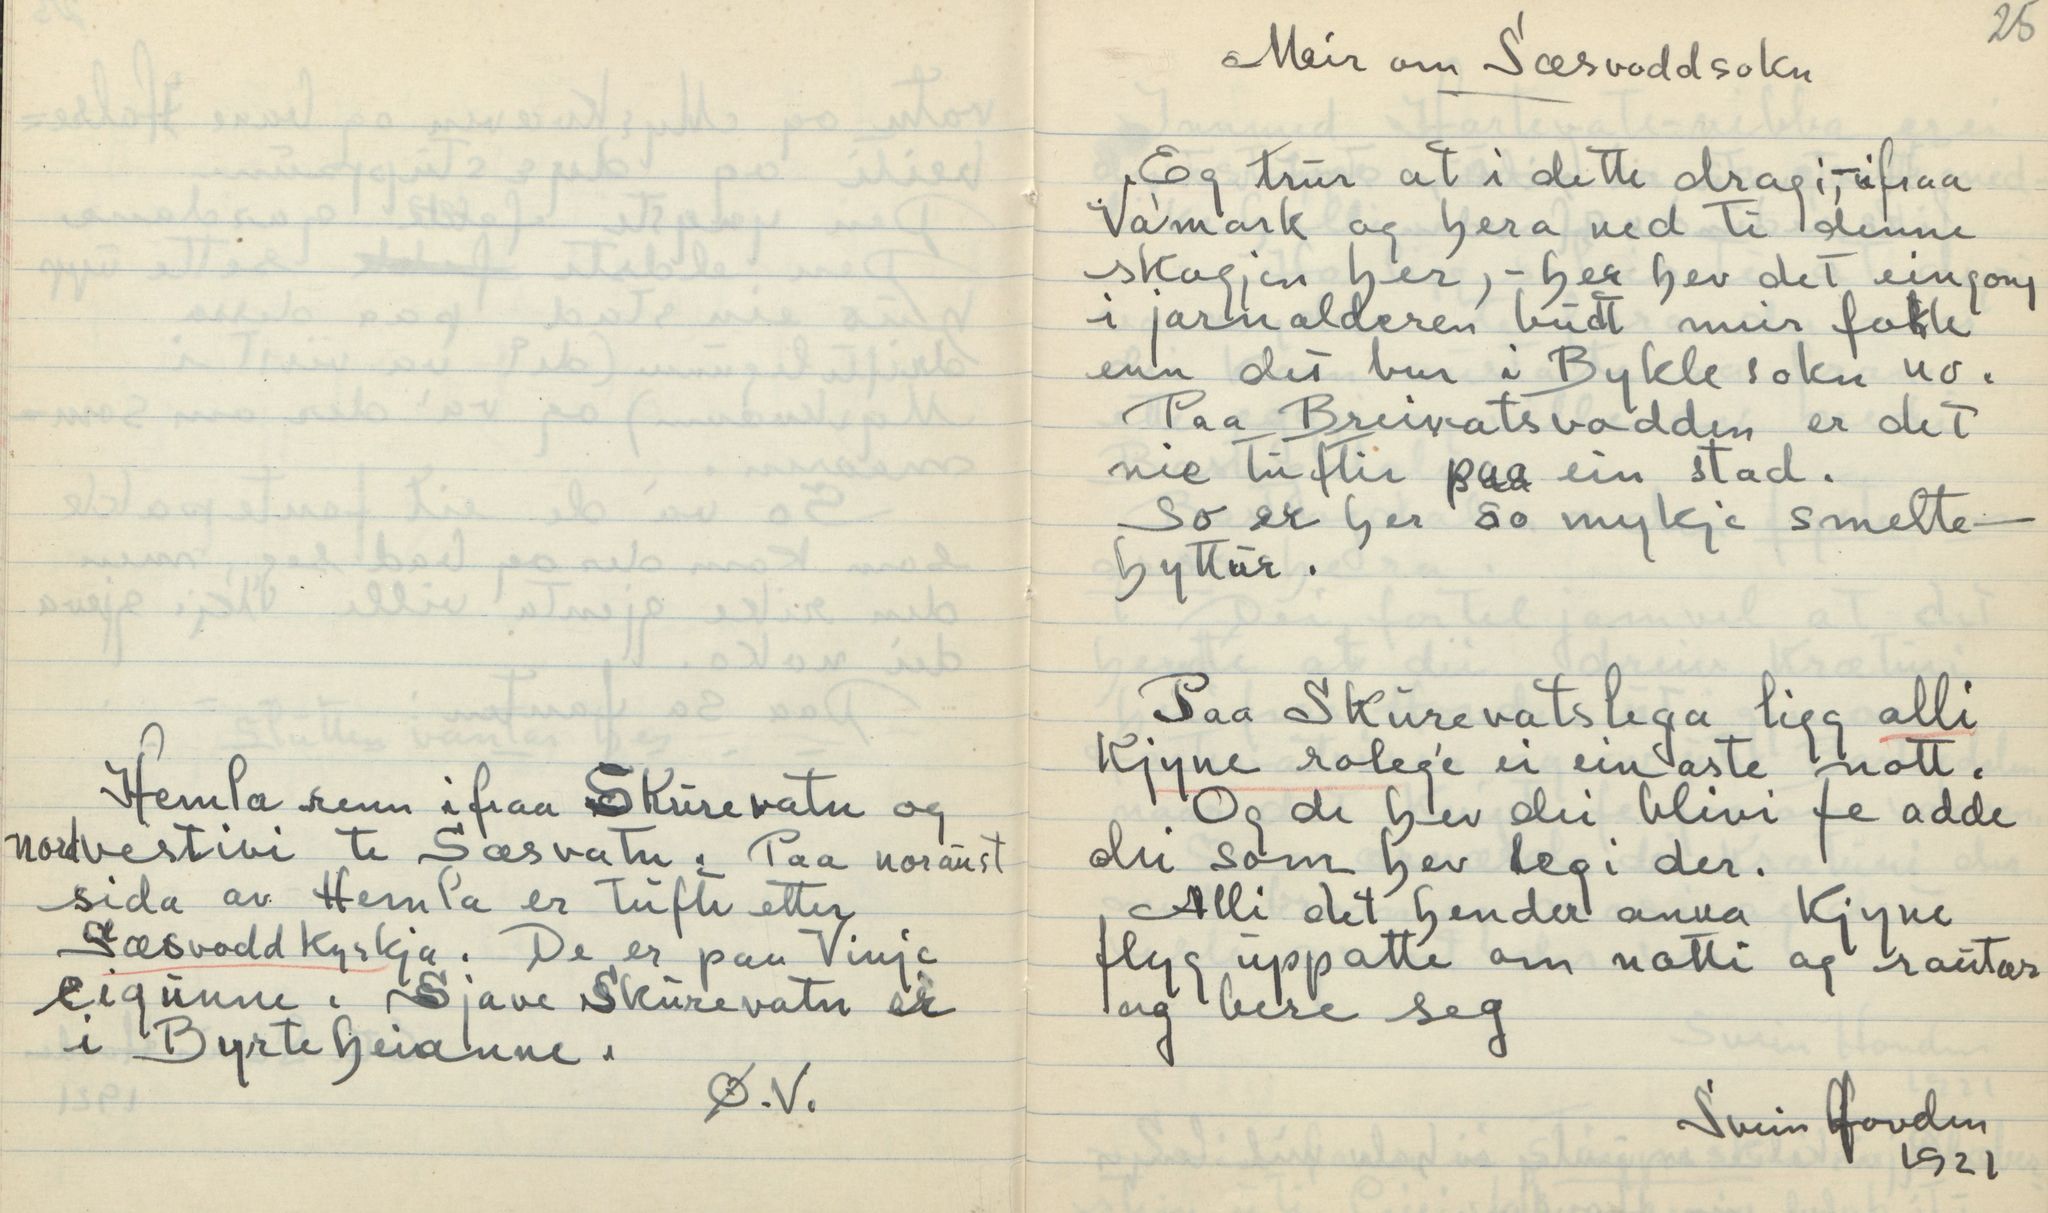 Hemla renn ifraa Skürevatn og
nordvestivi te Sæsvatn. Paa noraüst
sida av Hemla er tüfti etter
Sæsvoddkyrkja. De er paa Vinje
eigünne. Sjave Skürevatn er
i Byrteheianne.
Ø.V.
25
Meir om Sæsvoddsokn
Eg trür at i dette dragi, - ifraa
Vámark og hera ned ti denne
skogjen her, - her hev det eingong
i jarnalderen büdt meir folk
enn det bur i Bykle sokn no.
Paa Breivatsvodden er det
nie tüftir paa ein stad.
So er her so mykje smelte-
hyttür.
Paa Skürevatslega ligg alli
Kjyne rolege ei einaste nott.
Og de hev dei blivi fe adde
dei som hev legi der.
Alli det hender anna Kjyne
flyg üppatte om notti og raütar
og bere seg
Svein Hovden
1921